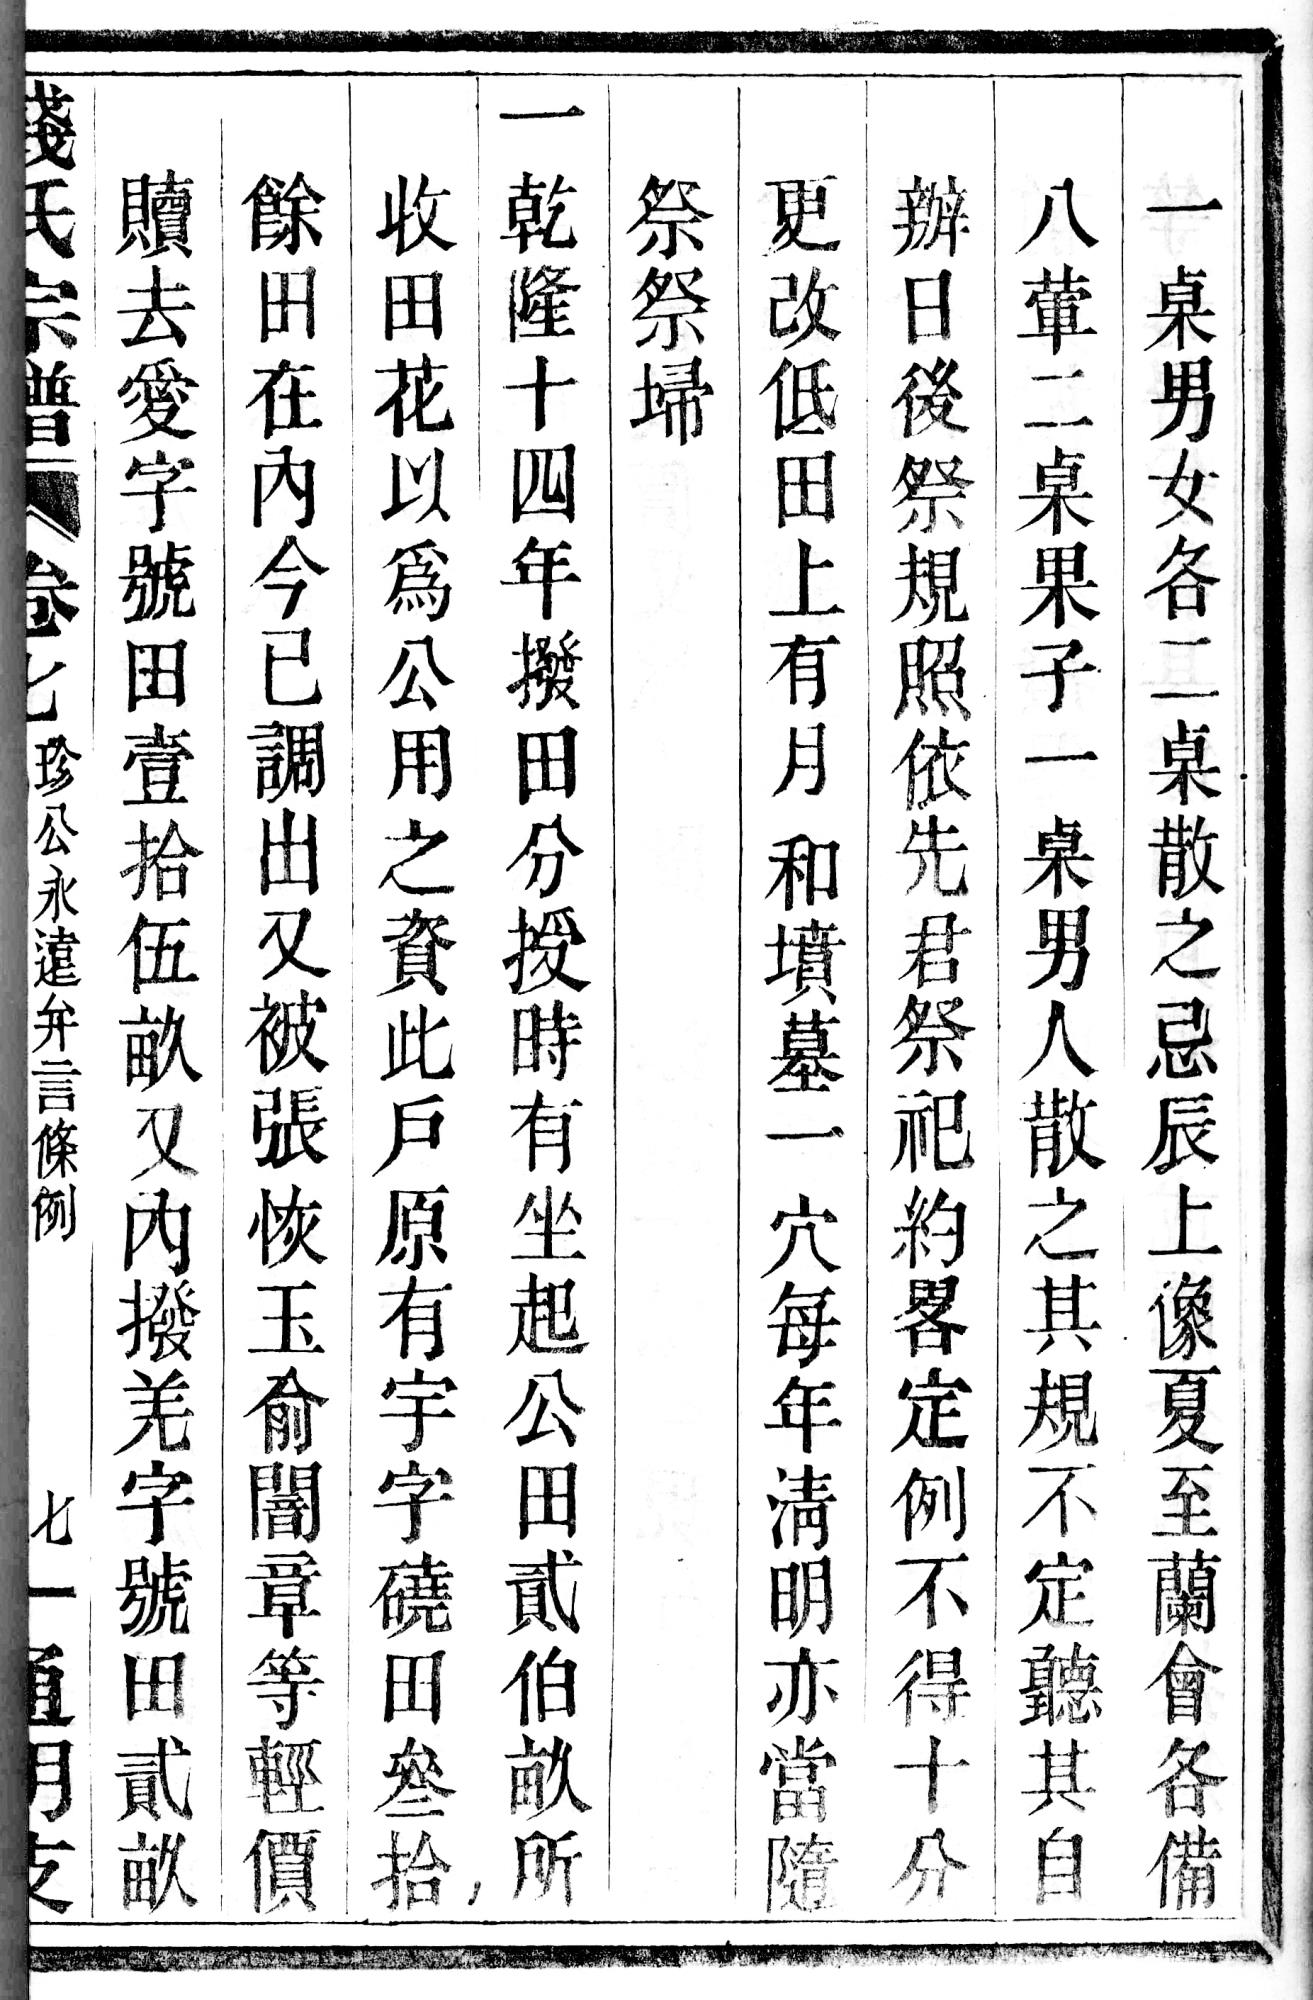 一桌男女各二桌散之忌辰上像夏至蘭會各備
八葷二桌果子一桌男人散之其規不定聽其自
辦日後祭規照依先君祭祀約畧定例不得十分
更改低田上有月和墳墓一穴每年淸明亦當隨
祭祭埽
一乾隆十四年撥田分授時有坐起公田貳伯畝所
收田花以爲公用之資此戶原有宇字磽田叄拾
餘田在內今已調出又被張恢玉俞闇章等輕價
贖去愛字號田壹拾伍畝又內撥羌字號田貳畝
錢氏宗譜 卷七 珍公永遠弁言條例 七一 通明支